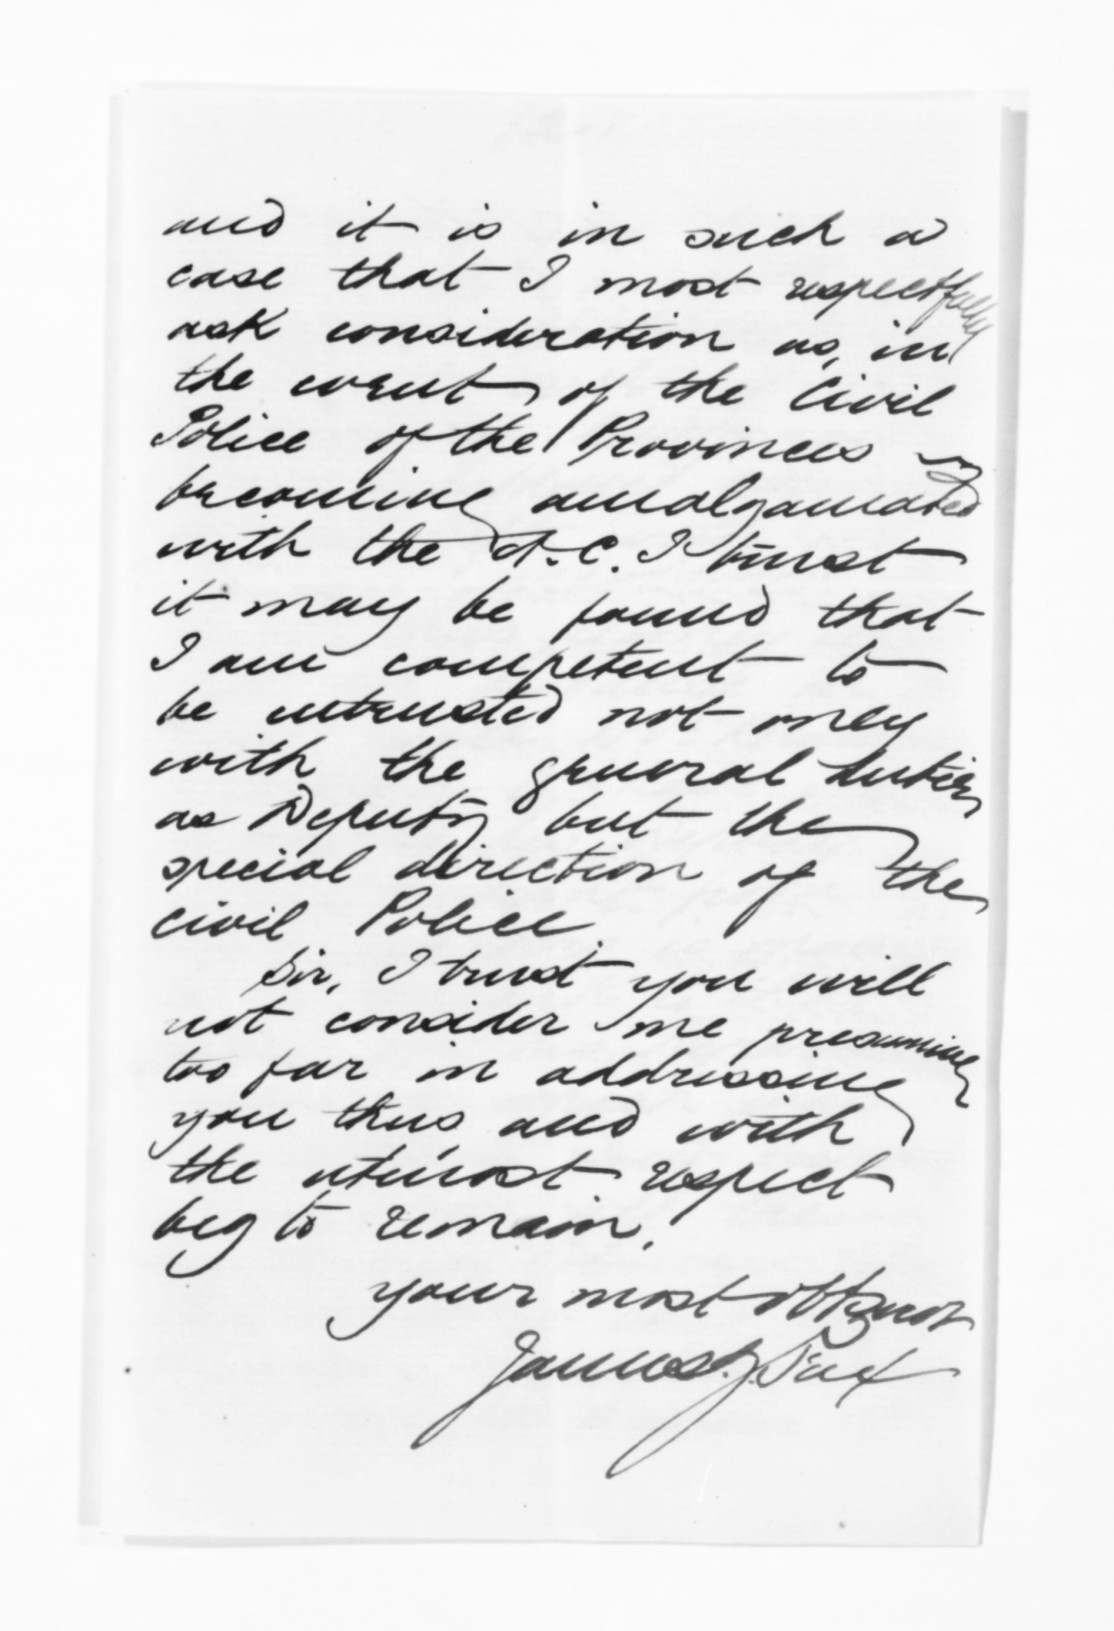 and it is in such a
case that I most respectfully
ask consideration as, in
the event of the Civil
Police of the Provinces
becoming amalgamated
with the A.C. I trust
it may be found that
I am competent to
be entrusted not only
with the general duties
as Deputy but the
special direction of the
Civil Police.
Sir, I trust you will
not consider me presuming
too far in addressing
you thus and with
the utmost respect
beg to remain,
your most
James J.